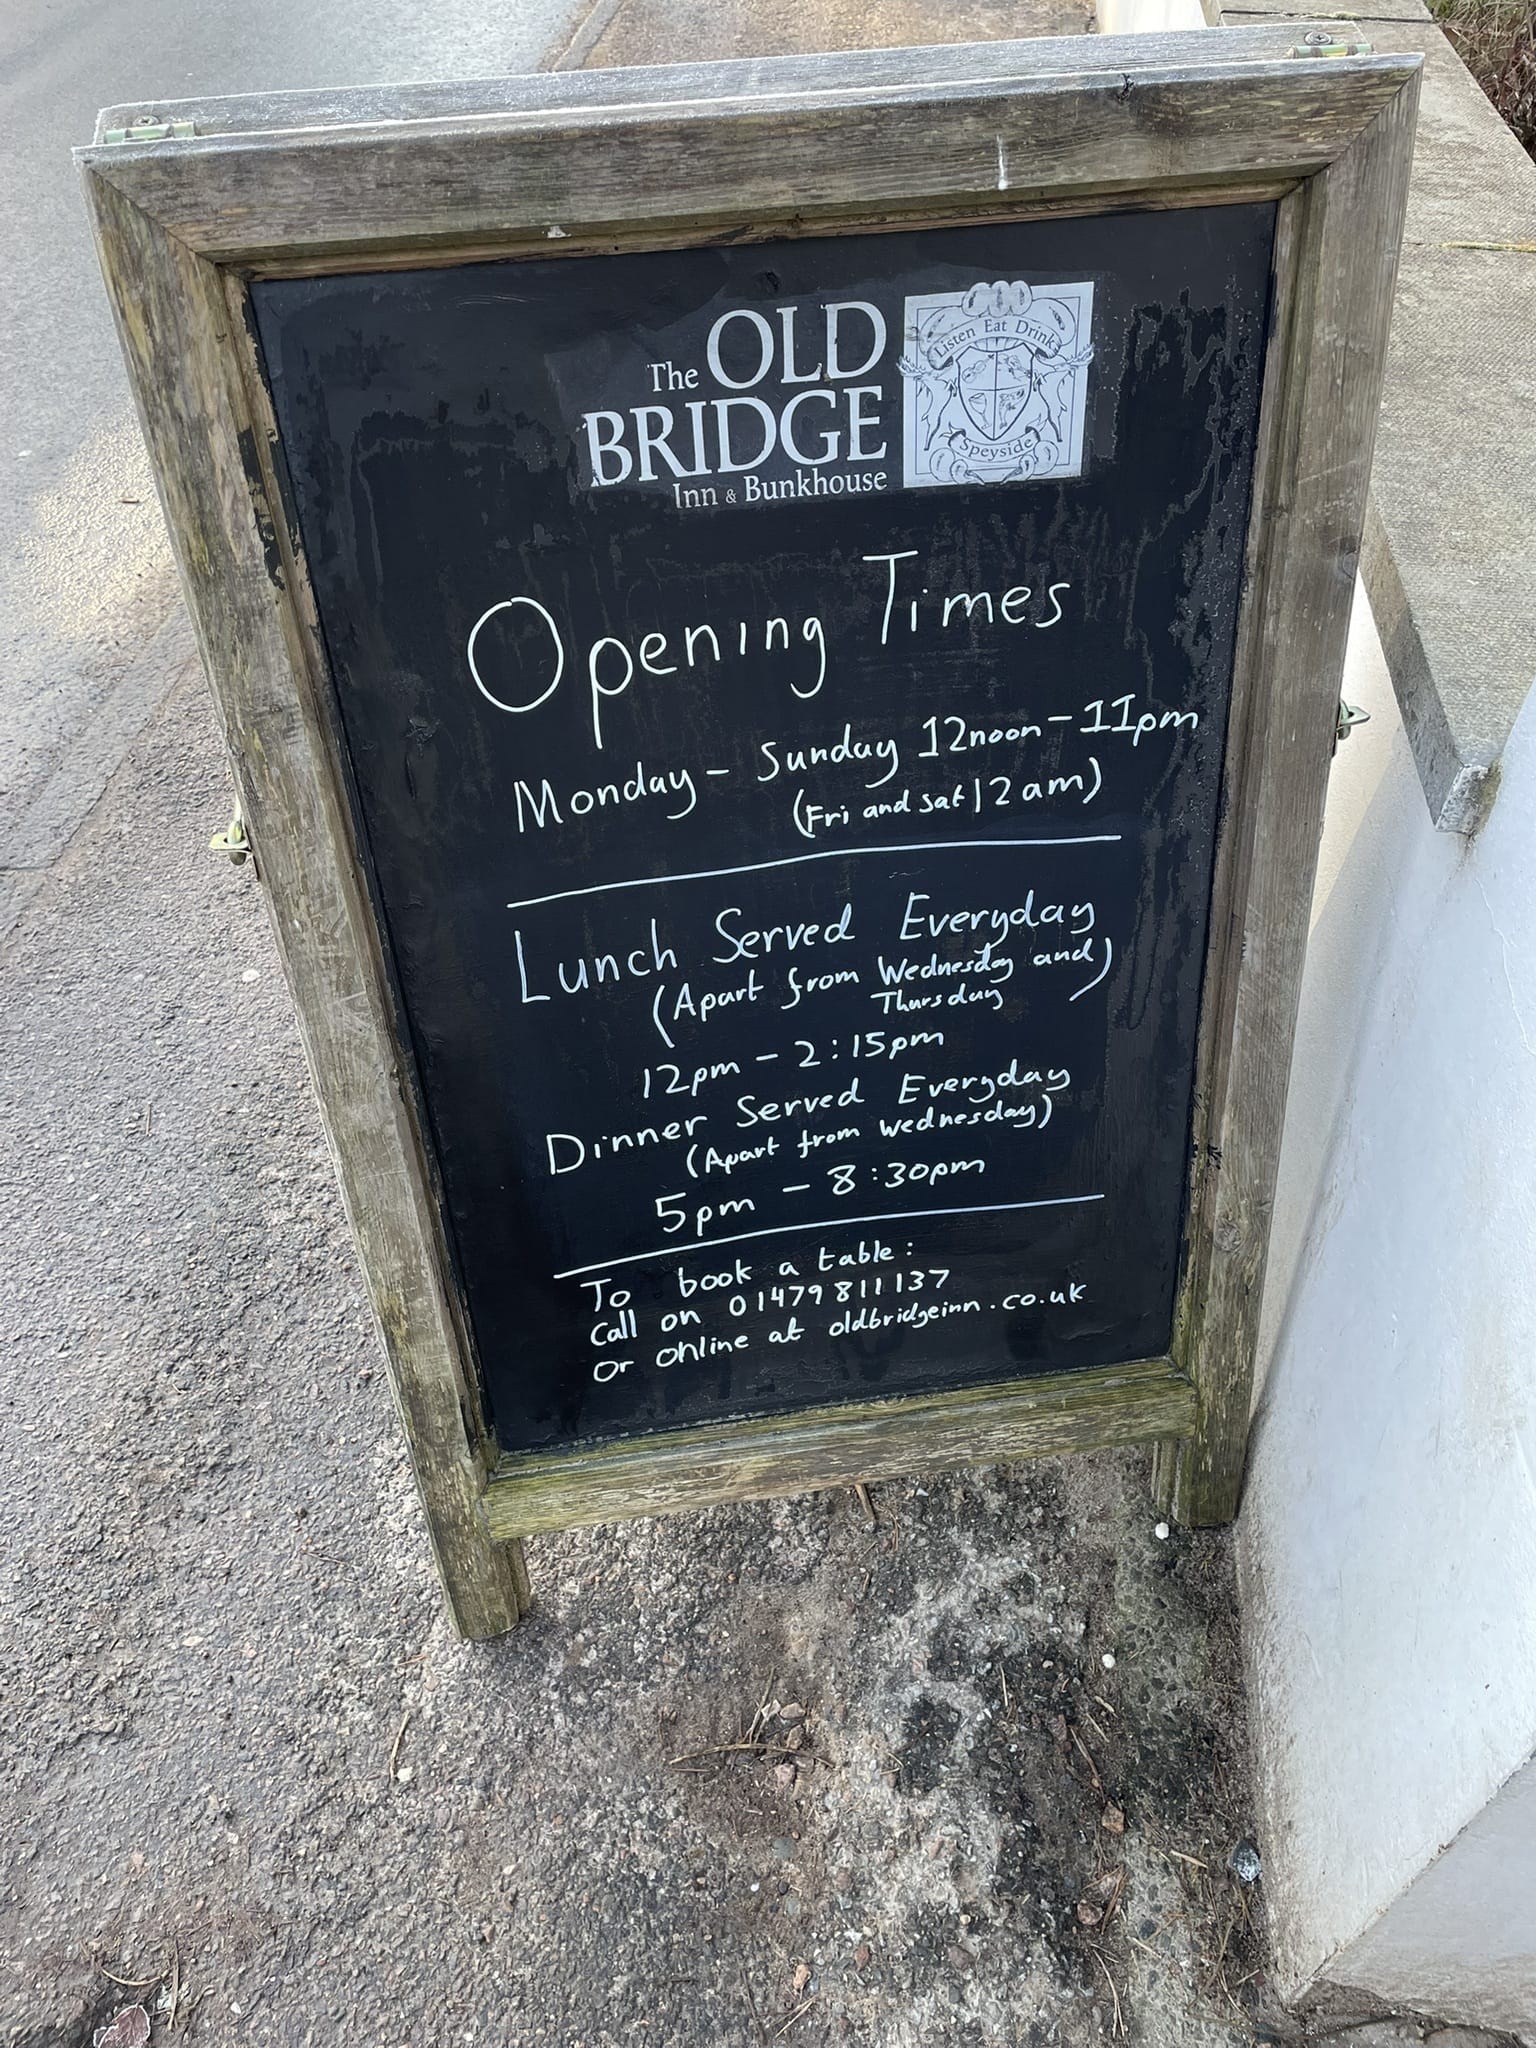 The OLD
BRIDGE
Inn & Bunkhouse
Listen Eat Drink
Speyside
Opening Times
Monday - Sunday 12noon - 11pm
(Fri and Sat 12am)
Lunch Served Everyday
(Apart from Wednesday and)
Thursday
12pm - 2:15pm
Dinner Served Everyday
(Apart from Wednesday)
5pm - 8:30pm
To book a table:
Call on 01479 811 137
or online at oldbridgeinn.co.uk